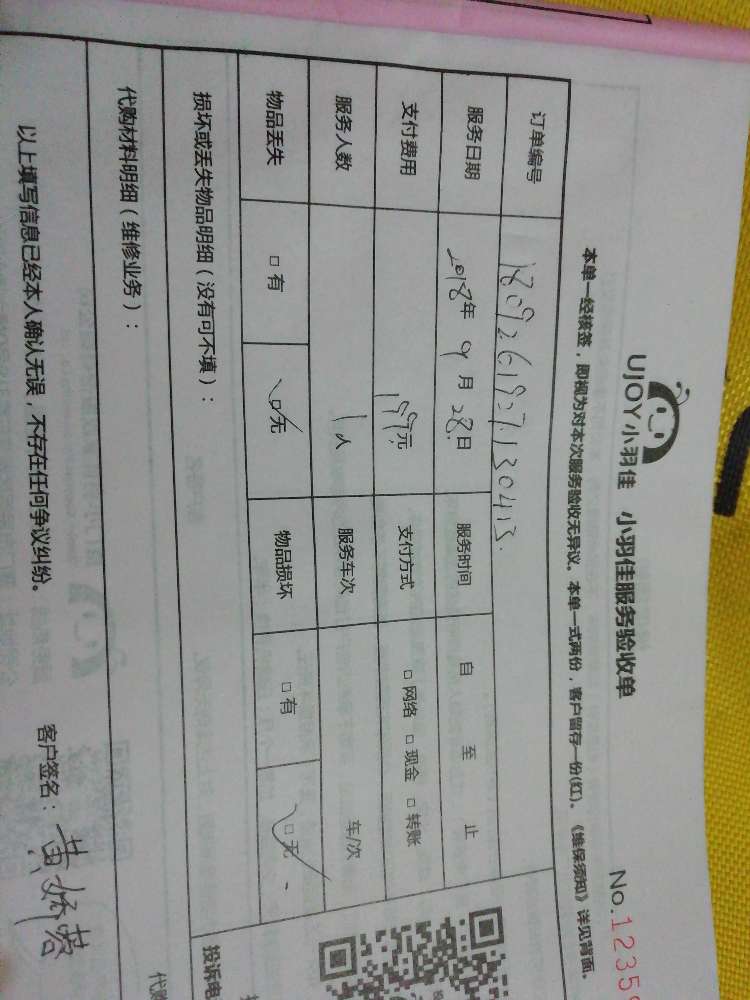 UJOY小羽佳 小羽佳服务验收单
No.1235
本单一经核签，即视为对本次服务验收无异议。本单一式两份，客户留存一份(红)。《维保须知》详见背面。
订单编号 180926195713041
服务日期 2018年 9月 28日 服务时间 自 至 止
支付费用 199元 支付方式 □网络 □现金 □转账
服务人数 1人 服务车次 车/次
物品丢失 □有 □无 物品损坏 □有 □无
损坏或丢失物品明细（没有可不填）：
投诉电
代购材料明细（维修业务）：
代购
以上填写信息已经本人确认无误，不存在任何争议纠纷。 客户签名：黄娇蓉